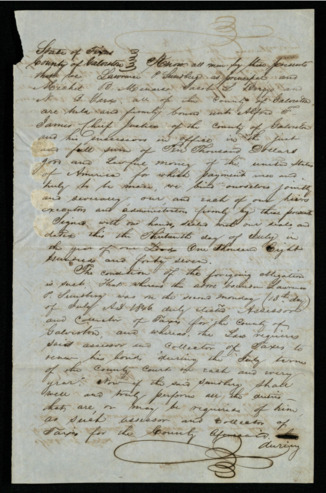 State of Texas
County of Galveston Know all men by these presents
that we Lawrence P. as principal and
B. Menard Jacob L. and
all of the County of Galveston
are held and firmly bound unto Alfred F.
James Chief Justice of the County of Galveston
and his successors in office, in the
full sum of Ten Thousand Dollars
good and Lawful money of the United States
of America for which payment well and
truly to be made we bind ourselves jointly
and severally, our and each of our heirs
executors and administrators firmly by these presents
Signed with our hands and seals and
dated this the day of July in
the year of our Lord One thousand Eight
Hundred and forty seven.
The condition of the forgoing obligation
is such That whereas the above
P. was on the second monday (13th day)
of July A.D. 1846 duly elected Assessor
and Collector of Taxes for the County of
Galveston and whereas the Law requires
said assessor and collector of Taxes to
renew his bond during the July term
of the County Court in each and every
year. Now if the said shall
well and truly perform all the duties
that are or may be required of him
as such assessor and Collector of
Taxes for the County
during